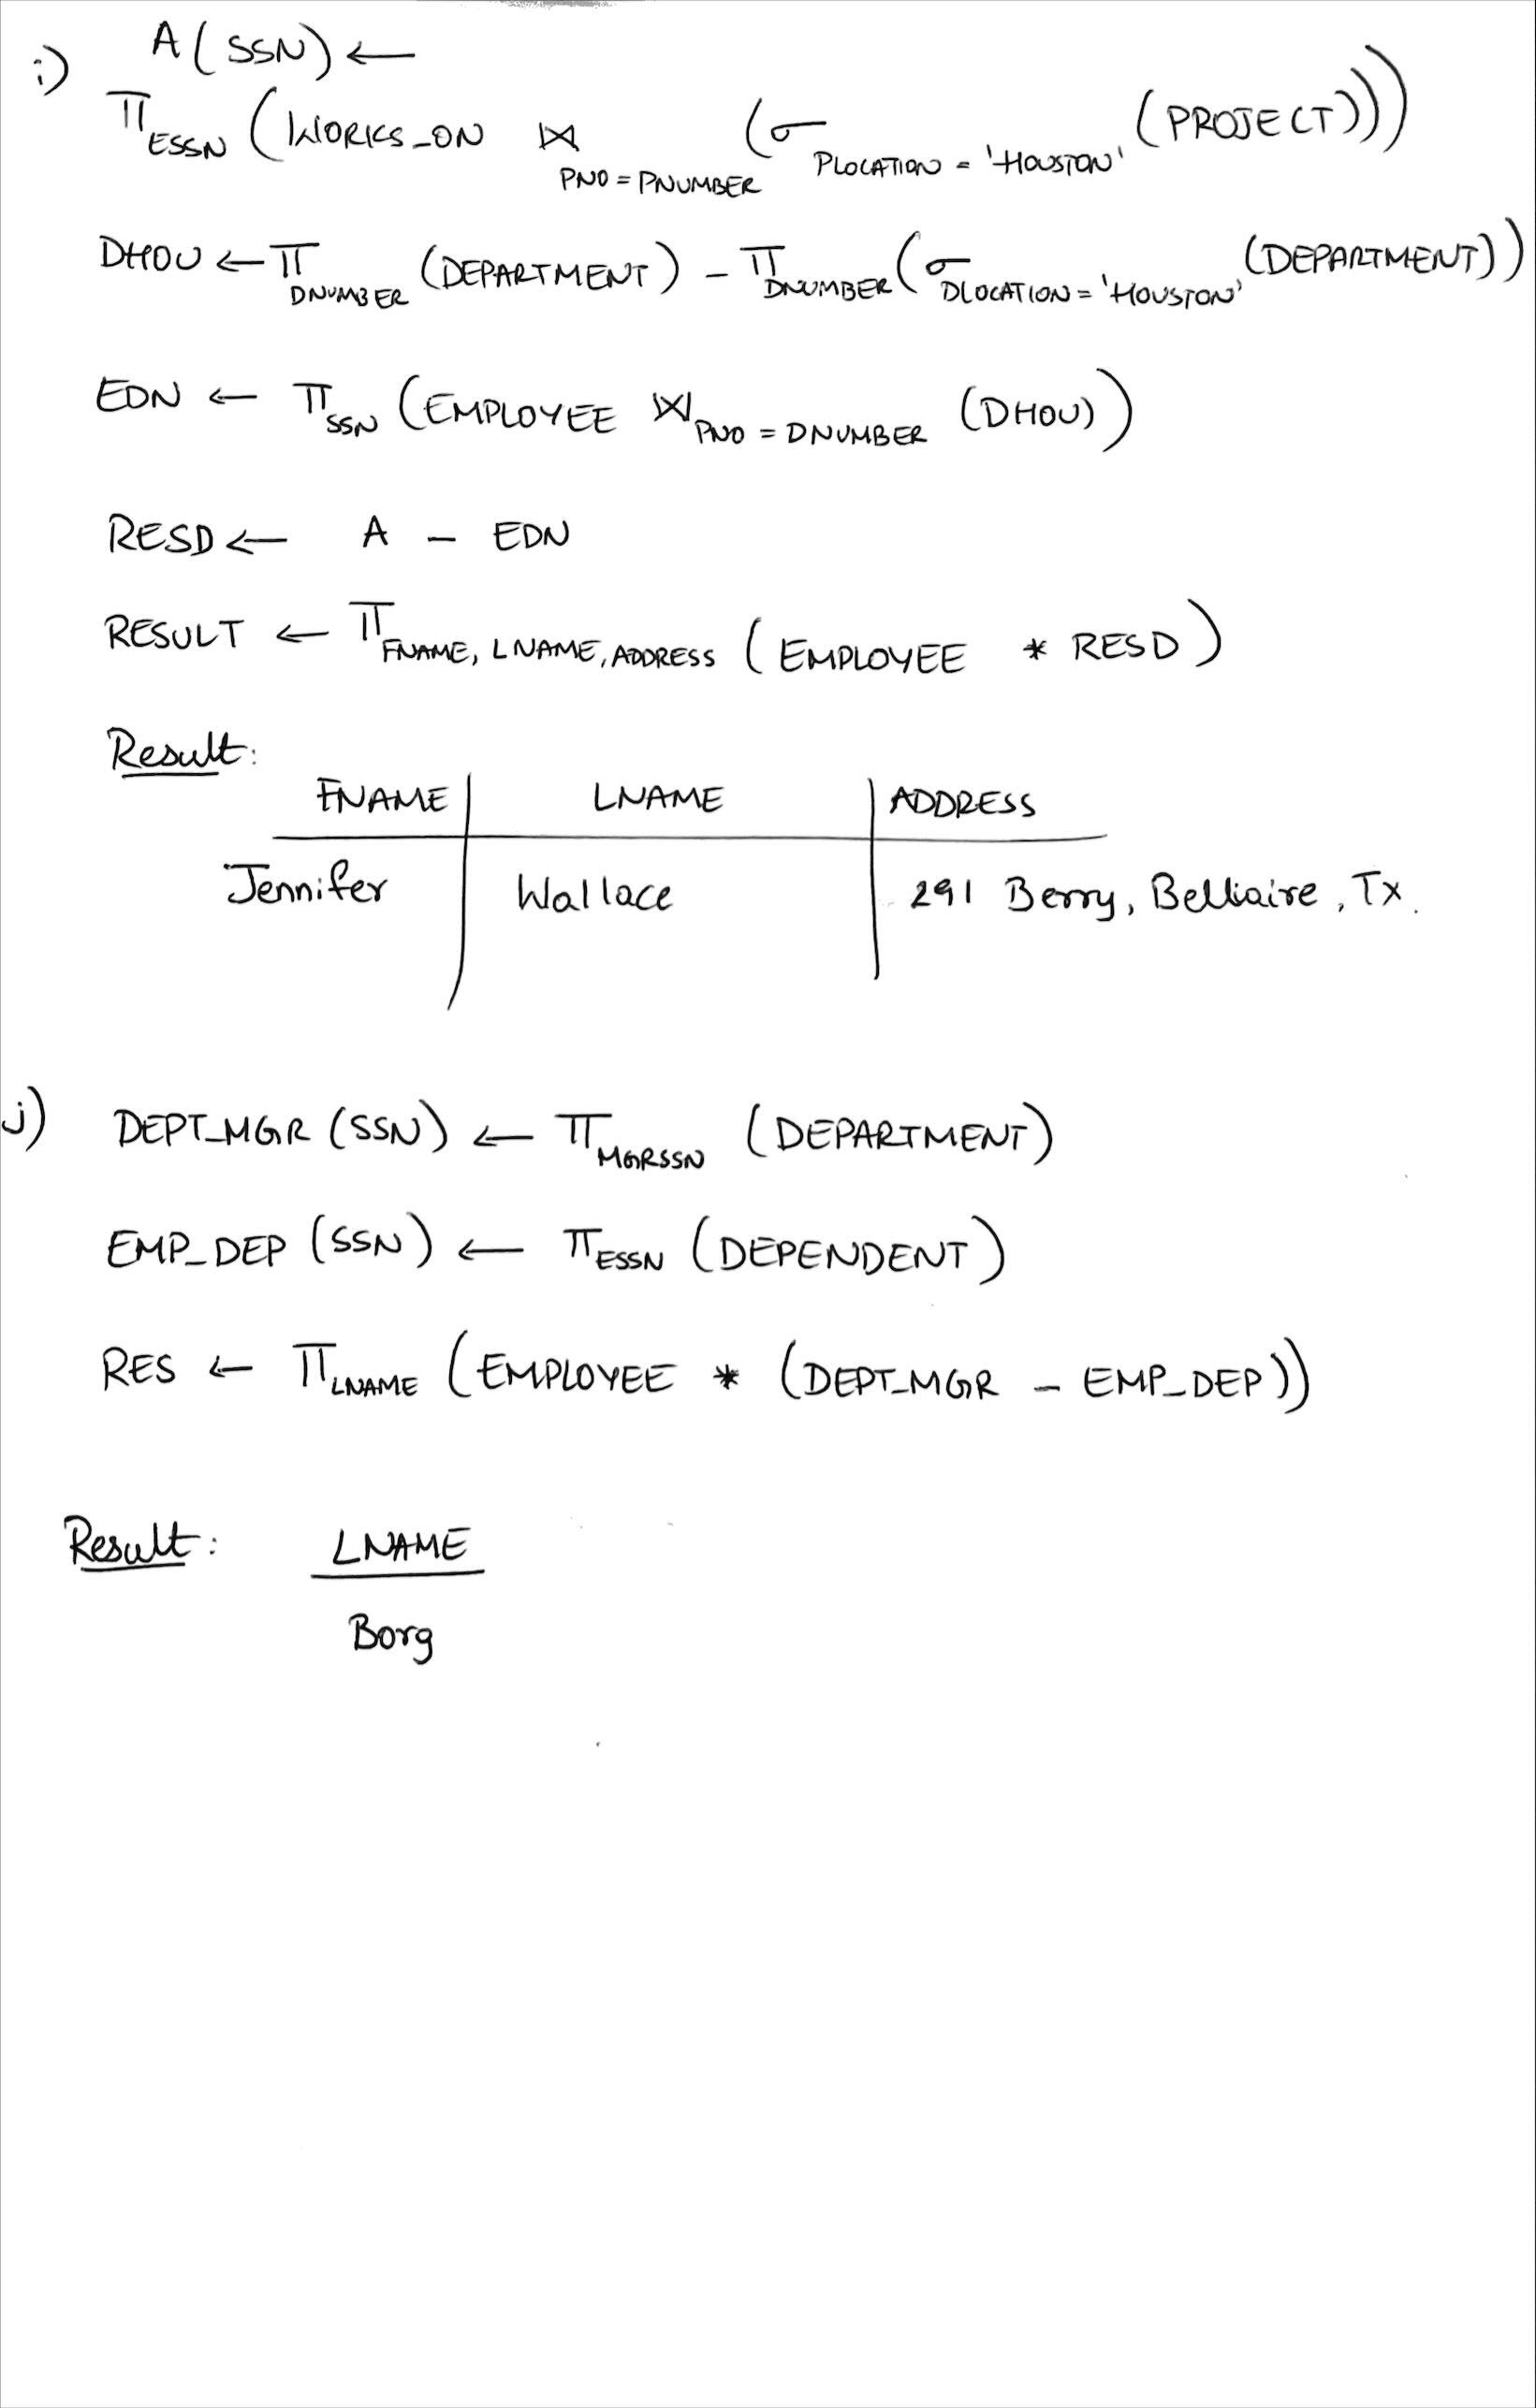 i) A(SSN) ←
π ESSN (WORKS_ON ⋈ PNO = PNUMBER (σ PLOCATION = 'HOUSTON' (PROJECT)))
DHOU ← π DNUMBER (DEPARTMENT) - π DNUMBER (σ DLOCATION = 'HOUSTON' (DEPARTMENT))
EDN ← π SSN (EMPLOYEE ⋈ PNO = DNUMBER (DHOU))
RESD ← A - EDN
RESULT ← π FNAME, LNAME, ADDRESS (EMPLOYEE * RESD)
Result:
FNAME LNAME ADDRESS
Jennifer Wallace 291 Berry, Belliaire, Tx.
j) DEPT_MGR (SSN) ← π MGRSSN (DEPARTMENT)
EMP_DEP (SSN) ← π ESSN (DEPENDENT)
RES ← π LNAME (EMPLOYEE * (DEPT_MGR - EMP_DEP))
Result: LNAME
Borg